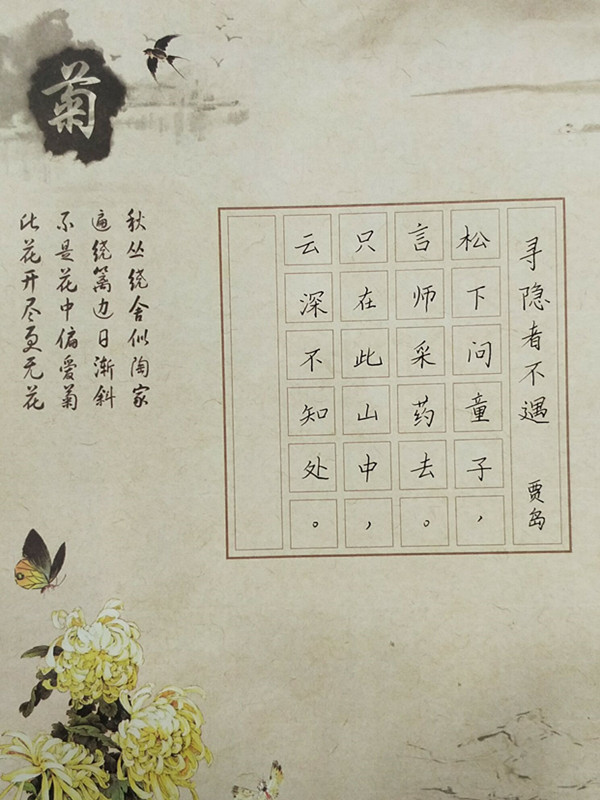 寻隐者不遇 贾岛
松下问童子，
言师采药去。
只在此山中，
云深不知处。
菊
秋丛绕舍似陶家
遍绕篱边日渐斜
不是花中偏爱菊
此花开尽更无花